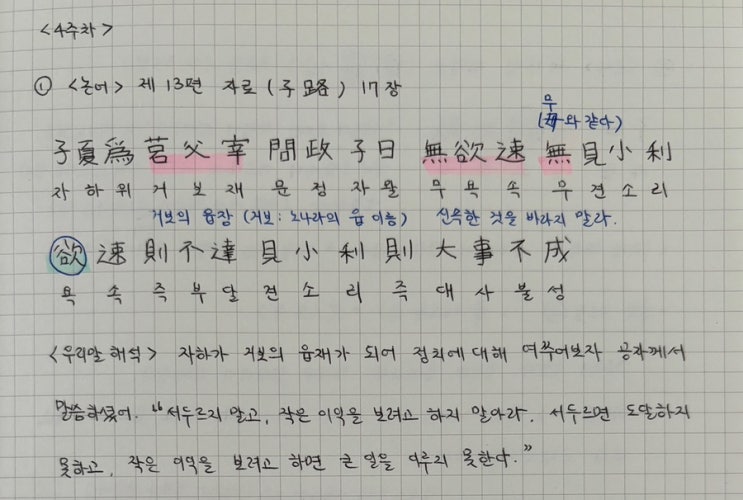 <4주차>
① <논어> 제 13편 자로 (子路) 17장
무
(毋와 같다)
子夏爲莒父宰 問政 子曰 無欲速 無見小利
자하위거보재 문정자왈 무욕속 무견소리
거보의 읍장 (거보: 노나라의 읍 이름) 신속한 것을 바라지 말라.
欲速則不達 見小利則 大事不成
욕속즉부달 견소리즉 대사불성
<우리말 해석> 자하가 거보의 읍재가 되어 정치에 대해 여쭈어보자 공자께서
말씀하셨어. "서두르지 말고, 작은 이익을 보려고 하지 말아라. 서두르면 도달하지
못하고, 작은 이익을 보려고 하면 큰 일을 이루지 못한다."